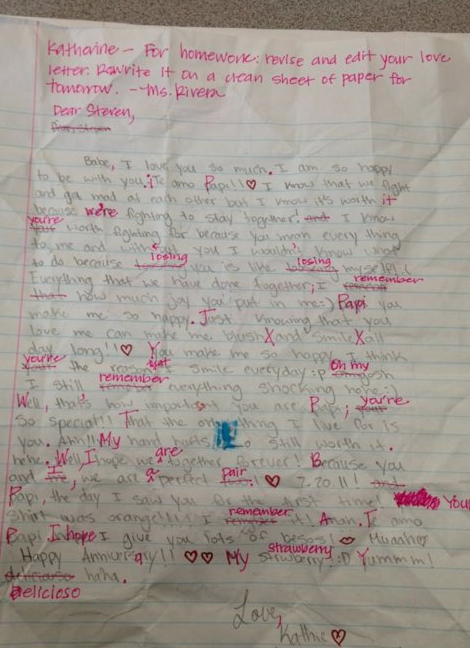 Katherine – For homework: revise and edit your love
letter. Rewrite it on a clean sheet of paper for
tomorrow. – Ms. Rivera
Dear Steven,
Babe, I love you so much. I am so happy
to be with you. ¡Te amo Papi!! ♡ I know that we fight
and get mad at each other but I know it's worth it
because we're fighting to stay together. and I know
you're worth fighting for because you mean every thing
to me and without you I wouldn't know what
to do because losing you is like losing myself!
Everything that we have done together; I remember
that how much joy you put in me:) Papi you
make me so happy. Just knowing that you
love me can make me blush X and smile X all
day long!! ♡ You make me so happy I think
you're the reason I smile everyday :p Oh my gosh
I still remember everything shocking :)
Well, that's how important you are Papi; you're
so special!! That the only thing I live for is
you. Ahh!! My hand hurts so still worth it.
hehe. Well, I hope we are together forever! Because you
and I, we are a perfect pair.! ♡ 7.20.11!
Papi, the day I saw you for the first time! Your
shirt was orange!!! I remember it! Te amo
Papi I hope I give you lots of besos!
Happy Anniversary!! ♡♡ My strawberry :D Yummm!
delicioso haha.
Delicioso
Love,
Kathie ♡